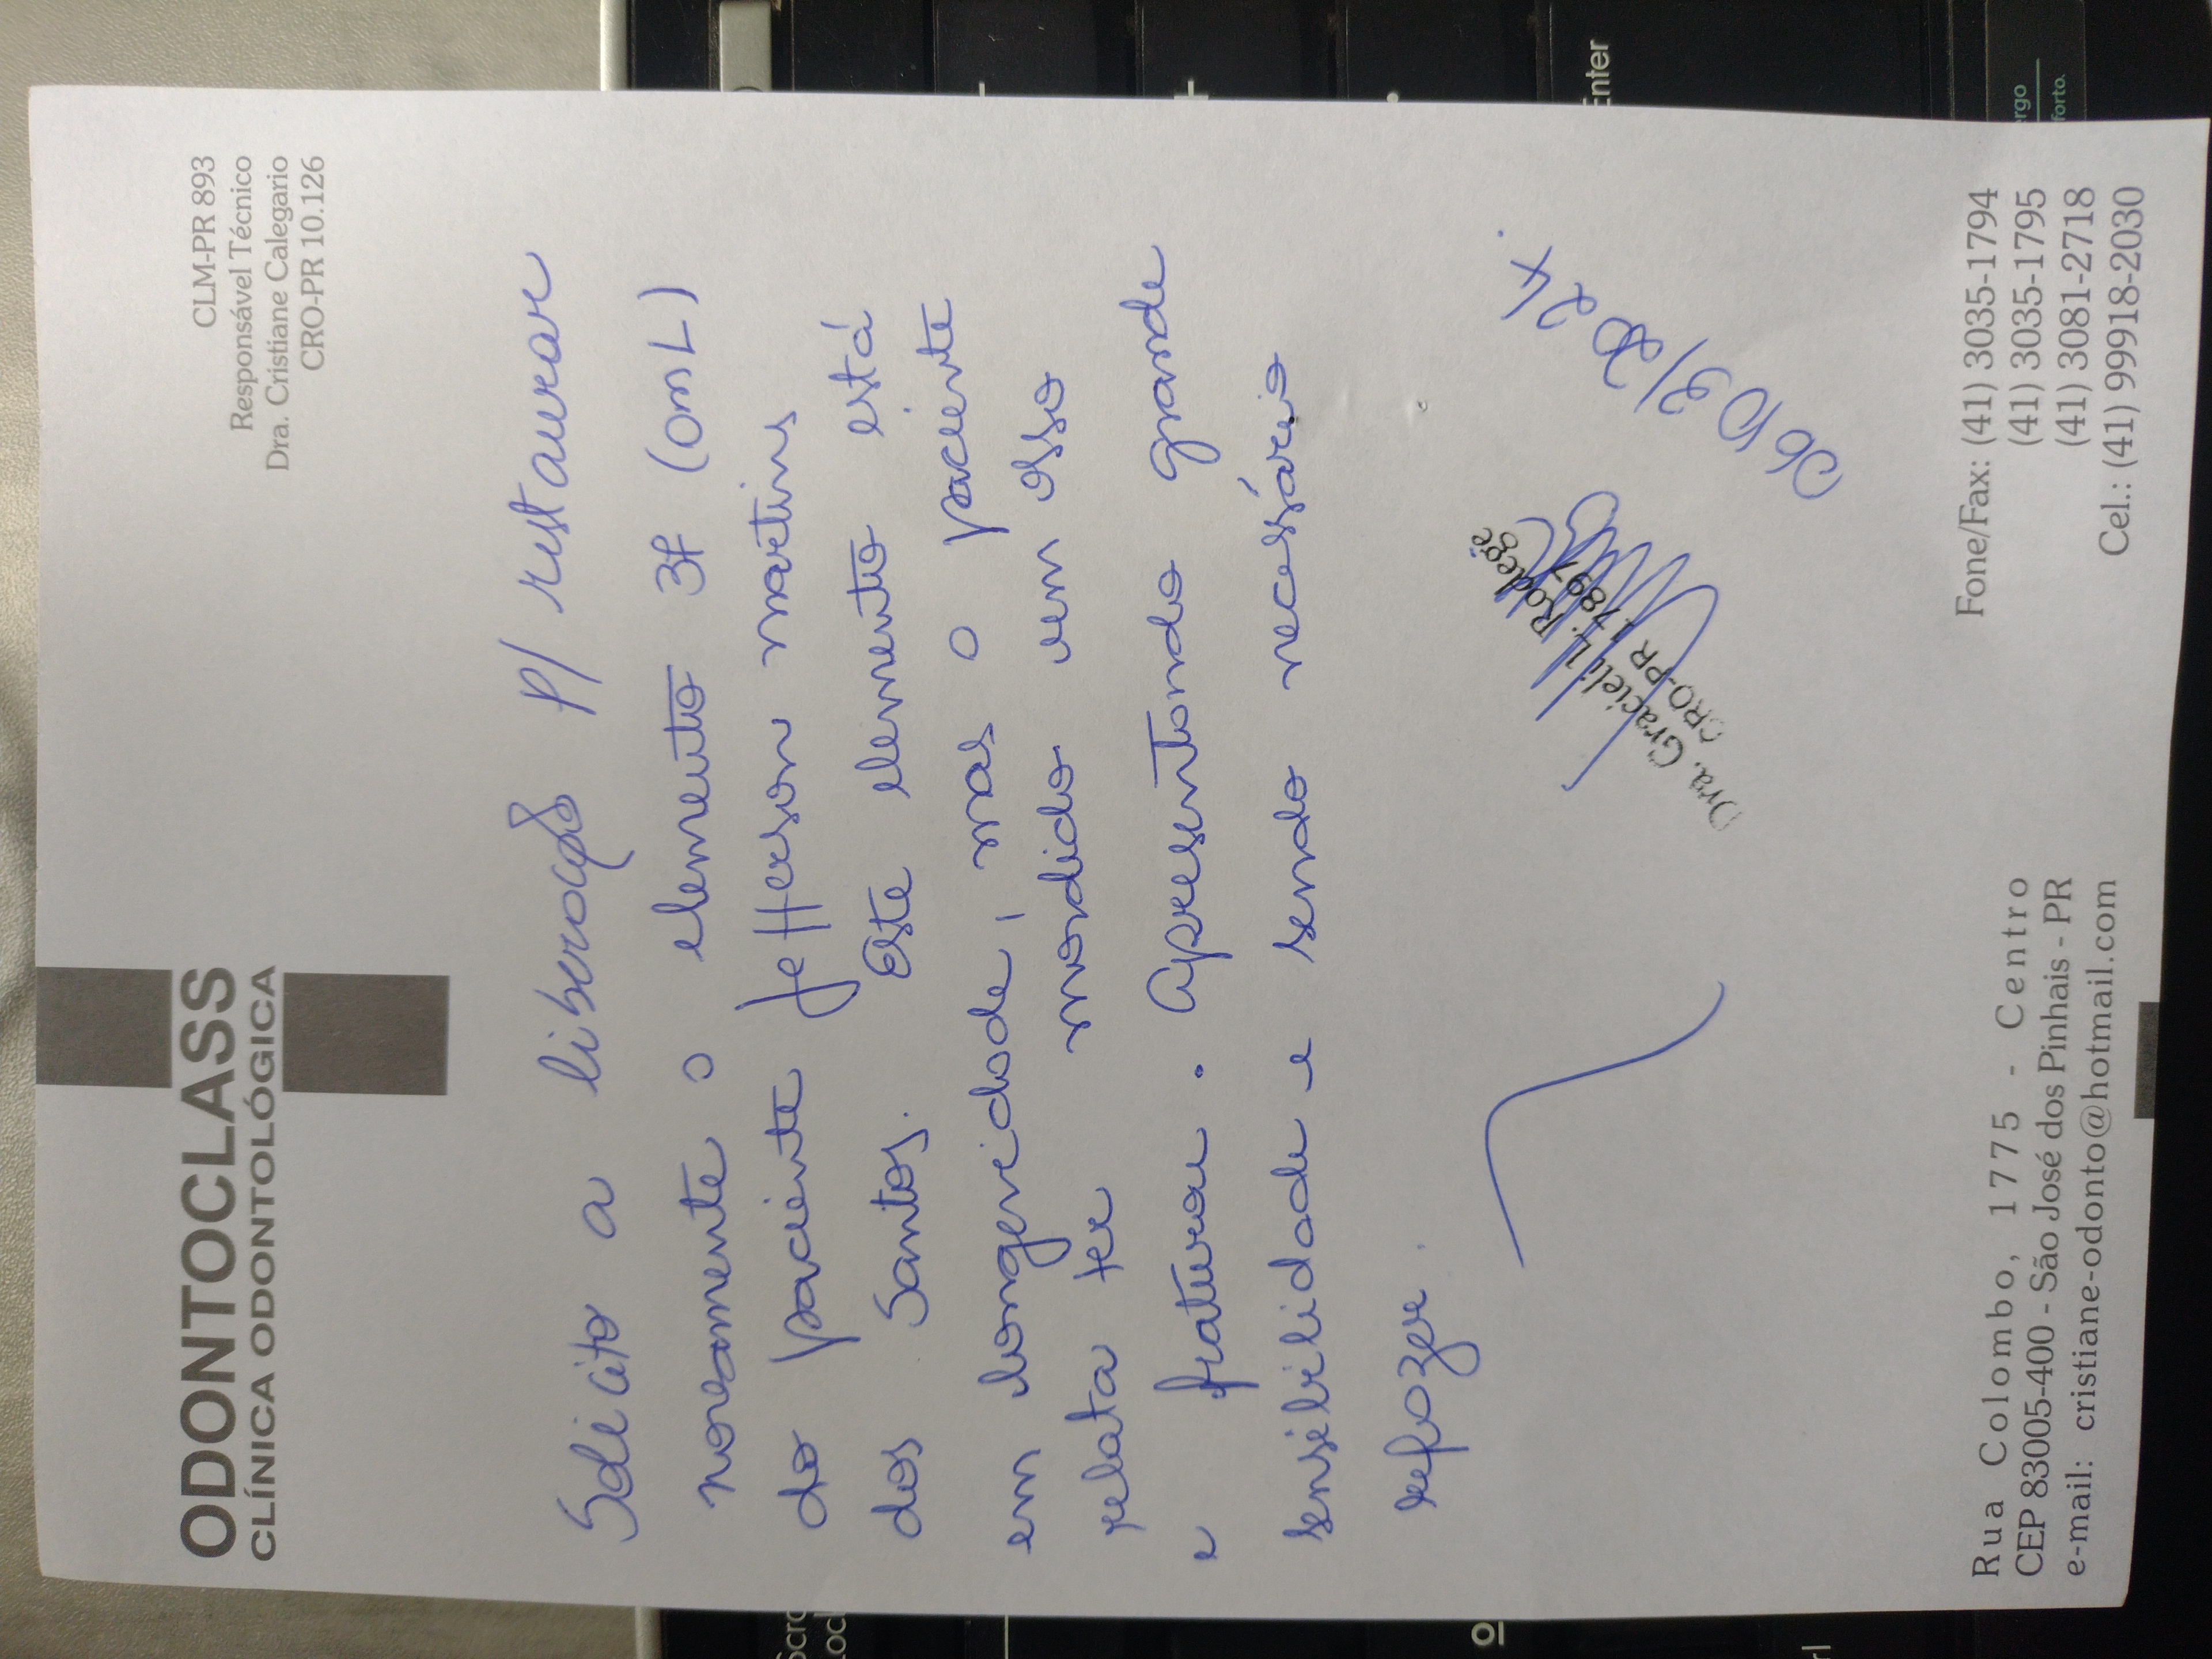 ODONTOCLASS
CLÍNICA ODONTOLÓGICA
CLM-PR 893
Responsável Técnico
Dra. Cristiane Calegario
CRO-PR 10.126
Solicito a liberação p/ restaurar
novamente o elemento 37 (OML)
do paciente Jefferson Martins
dos Santos. Este elemento está
em longevidade, mas o paciente
relata ter mordido em osso
e fratura. Apresentando grande
sensibilidade e sendo necessário
refazer.
Dra. Gracieli L. Rodege
CRO-PR 17897
06/03/2024.
Rua Colombo, 1775 - Centro
CEP 83005-400 - São José dos Pinhais - PR
e-mail: cristiane-odonto@hotmail.com
Fone/Fax: (41) 3035-1794
(41) 3035-1795
(41) 3081-2718
Cel.: (41) 99918-2030
Enter
ergo
forto.